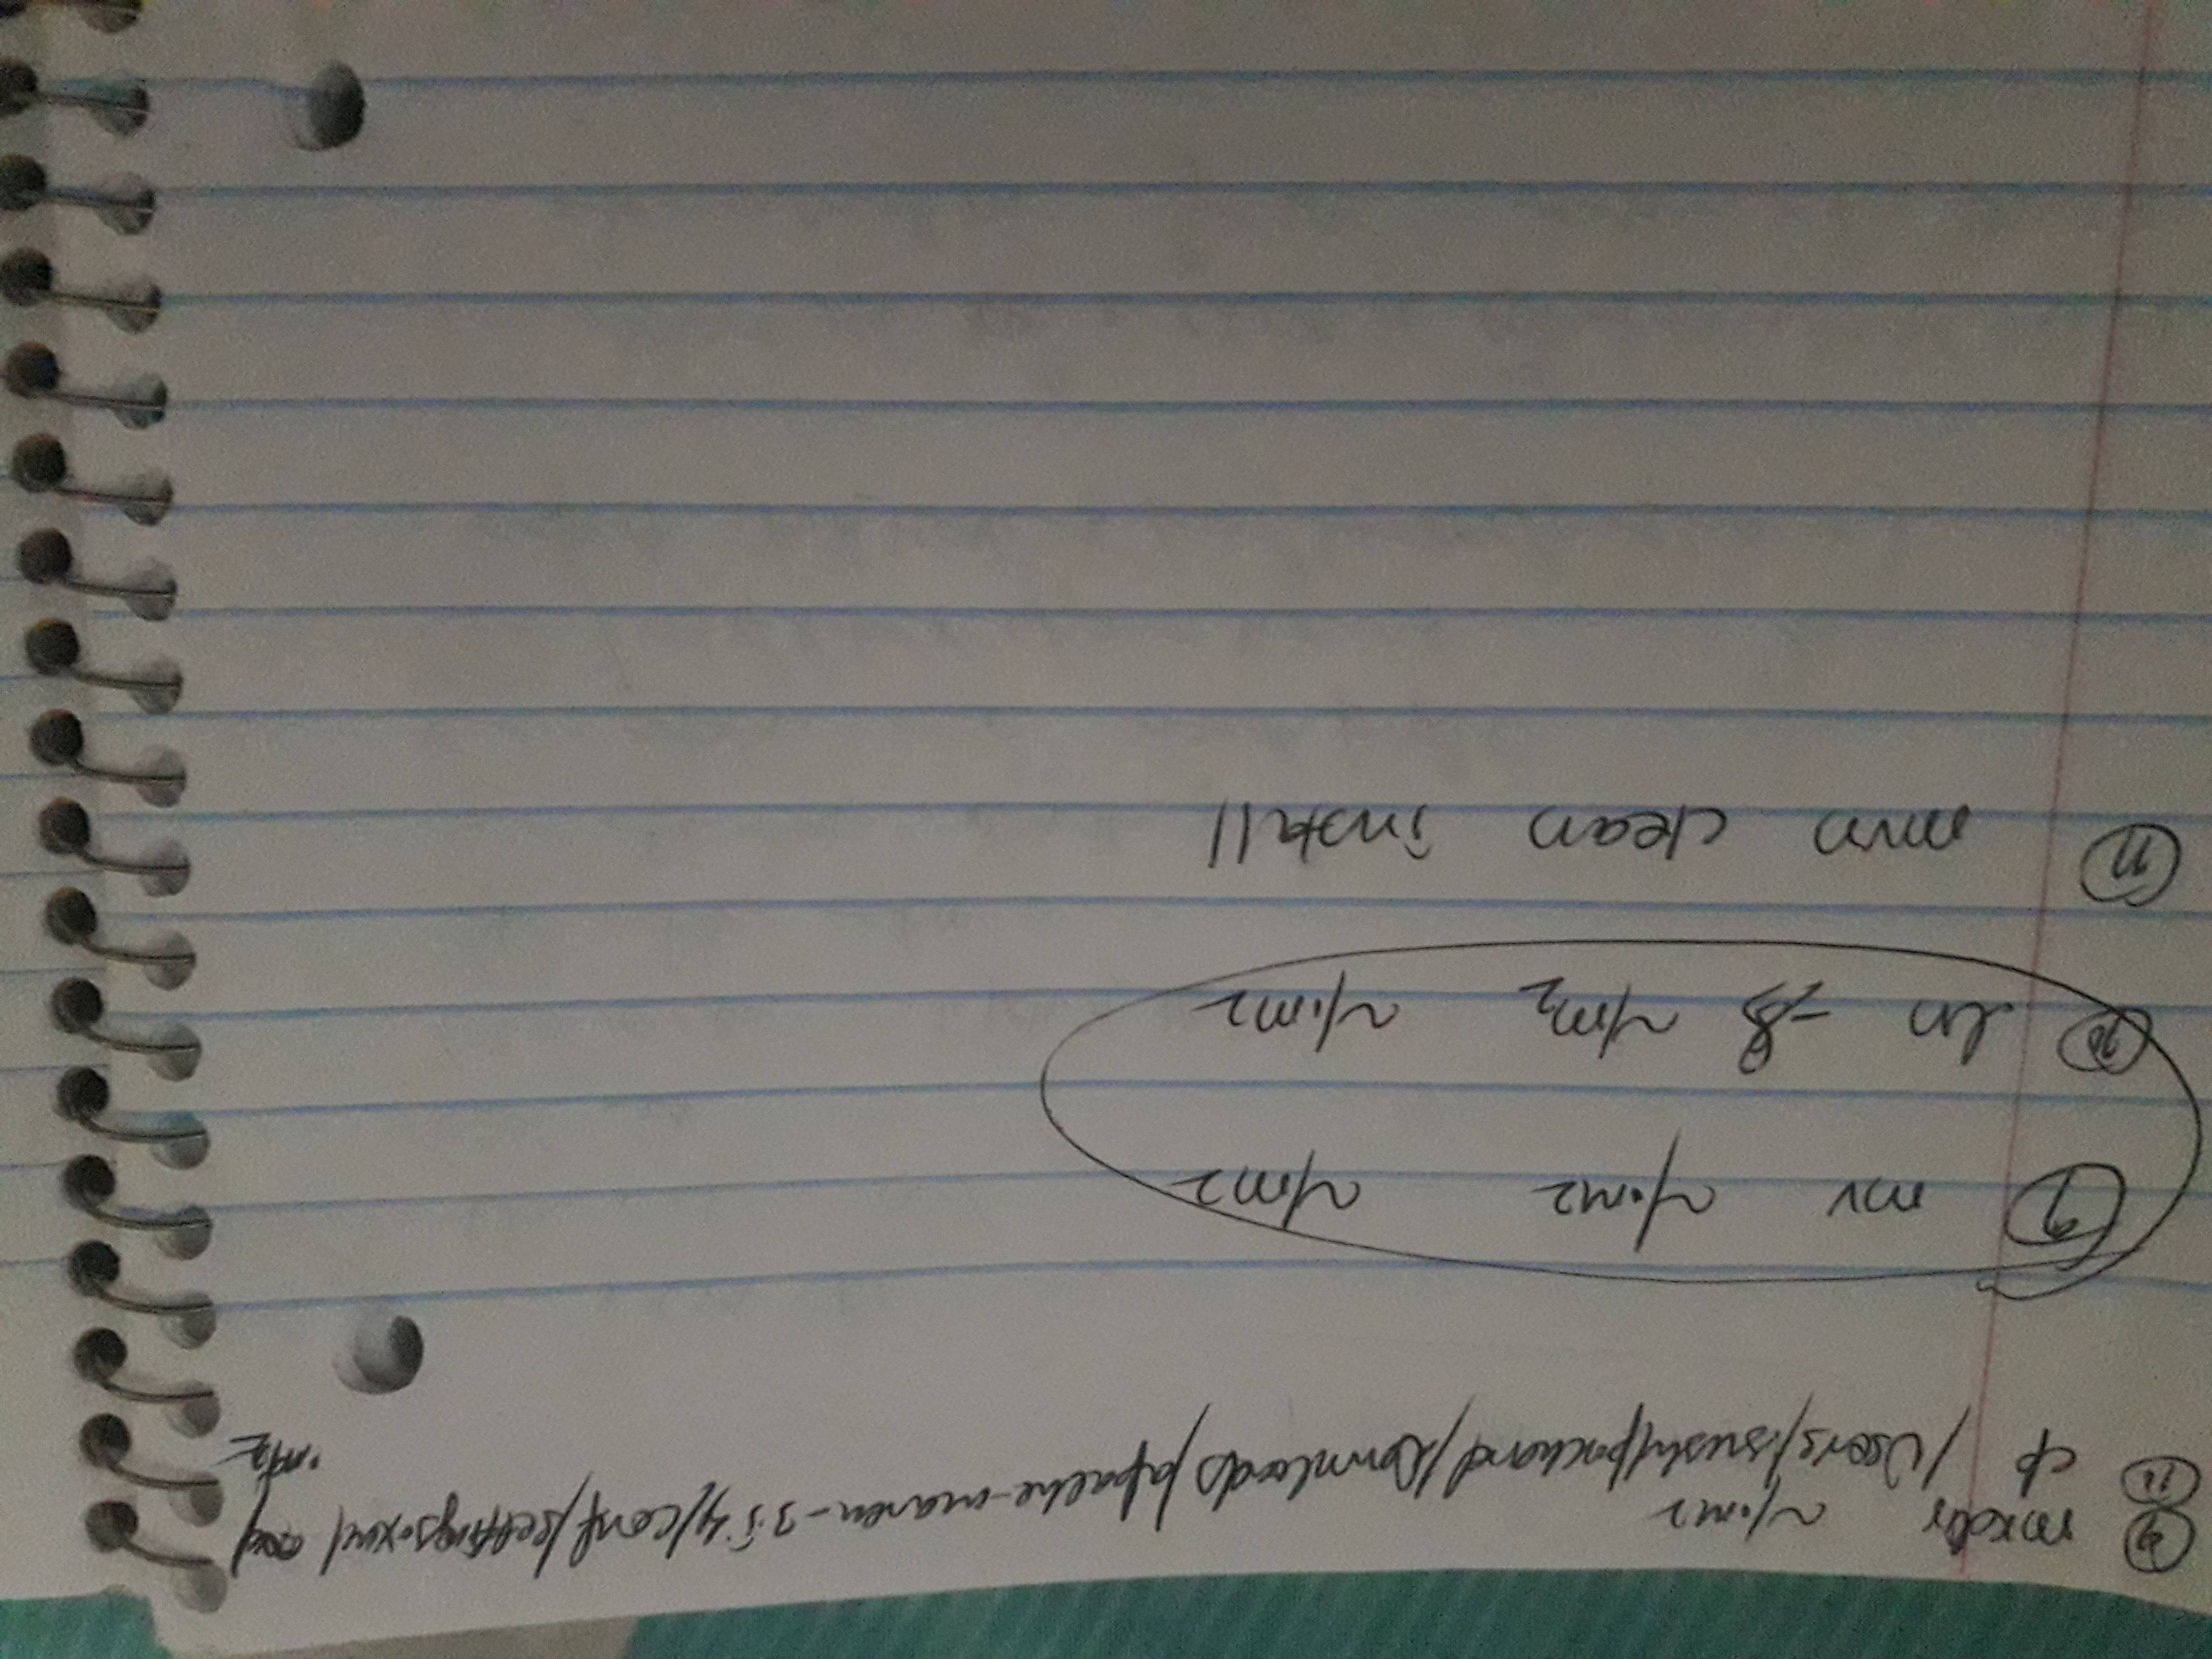 mkdir ~/.m2
cp /Users/sushilpochand/Downloads/apache-maven-3.5.4/conf/settings.xml
.m2
9 mv ~/.m2 ~/m2
10 ln -s ~/m2 ~/.m2
11 mvn clean install